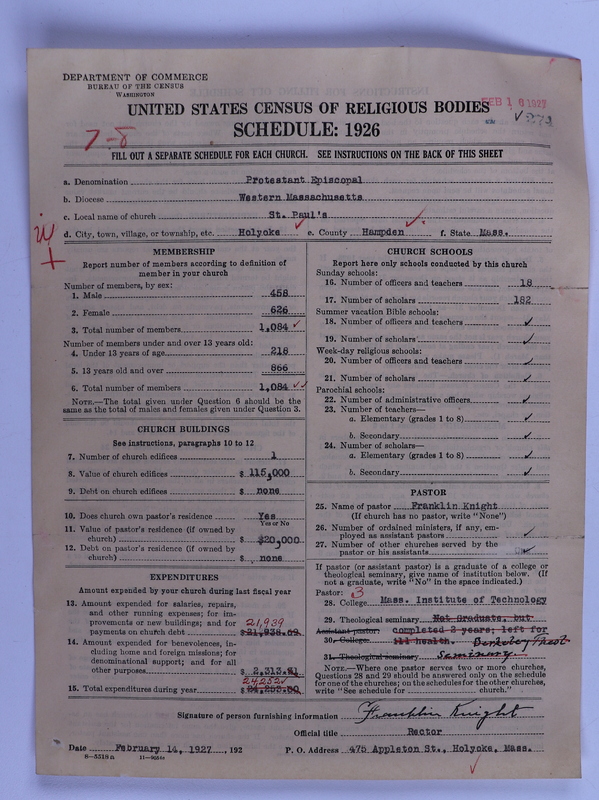 DEPARTMENT OF COMMERCE
BUREAU OF THE CENSUS
WASHINGTON
FEB 16 1927
UNITED STATES CENSUS OF RELIGIOUS BODIES
SCHEDULE: 1926
7-8
FILL OUT A SEPARATE SCHEDULE FOR EACH CHURCH. SEE INSTRUCTIONS ON THE BACK OF THIS SHEET
a. Denomination Protestant Episcopal
b. Diocese Western Massachusetts
c. Local name of church St. Paul's
d. City, town, village, or township, etc. Holyoke e. County Hampden f. State Mass.
MEMBERSHIP
Report number of members according to definition of
member in your church
Number of members, by sex:
1. Male 458
2. Female 626
3. Total number of members 1,084
Number of members under and over 13 years old:
4. Under 13 years of age 218
5. 13 years old and over 866
6. Total number of members 1,084
NOTE.—The total given under Question 6 should be
same as the total of males and females given under Question 3.
CHURCH BUILDINGS
See instructions, paragraphs 10 to 12
7. Number of church edifices 1
8. Value of church edifices $ 115,000
9. Debt on church edifices $ none
10. Does church own pastor's residence Yes
Yes or No
11. Value of pastor's residence (if owned by
church) $ $20,000
12. Debt on pastor's residence (if owned by
church) $ none
EXPENDITURES
Amount expended by your church during last fiscal year
13. Amount expended for salaries, repairs,
and other running expenses; for im-
provements or new buildings; and for 21,939
payments on church debt $
14. Amount expended for benevolences, in-
cluding home and foreign missions; for
denominational support; and for all
other purposes $ 2,313.21
24,252
15. Total expenditures during year $
CHURCH SCHOOLS
Report here only schools conducted by this church
Sunday schools:
16. Number of officers and teachers 18
17. Number of scholars 182
Summer vacation Bible schools:
18. Number of officers and teachers ✓
19. Number of scholars ✓
Week-day religious schools:
20. Number of officers and teachers ✓
21. Number of scholars ✓
Parochial schools:
22. Number of administrative officers ✓
23. Number of teachers—
a. Elementary (grades 1 to 8) ✓
b. Secondary ✓
24. Number of scholars—
a. Elementary (grades 1 to 8) ✓
b. Secondary ✓
PASTOR
25. Name of pastor Franklin Knight
(If church has no pastor, write "None")
26. Number of ordained ministers, if any, em-
ployed as assistant pastors ✓
27. Number of other churches served by the
pastor or his assistants
If pastor (or assistant pastor) is a graduate of a college or
theological seminary, give name of institution below. (If
not a graduate, write "No" in the space indicated.)
Pastor: 3
28. College Mass. Institute of Technology
29. Theological seminary Not Graduate, but
Assistant pastor: completed 2 years; left for
30. College ill health. Berkeley Theol
31. Theological seminary Seminary
NOTE.—Where one pastor serves two or more churches,
Questions 28 and 29 should be answered only on the schedule
for one of the churches; on the schedules for the other churches,
write "See schedule for church."
Signature of person furnishing information Franklin Knight
Official title Rector
Date February 14, 1927, 192 P. O. Address 475 Appleton St., Holyoke, Mass.
8—5518a